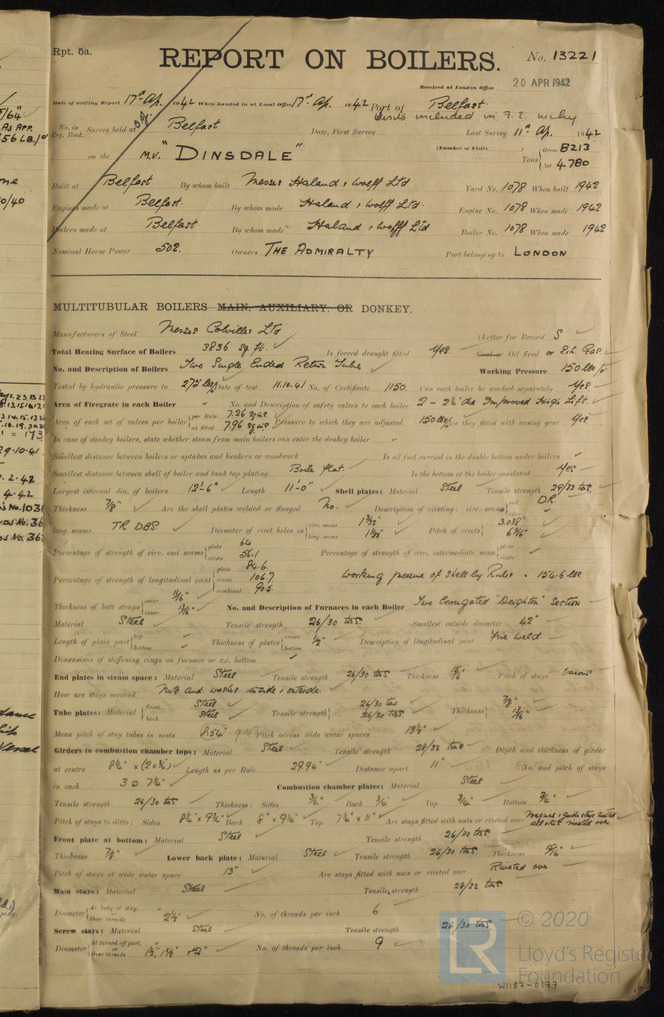 Rpt. 5a.
REPORT ON BOILERS.
No. 13221
Received at London Office
20 APR 1942
Date of writing Report 17th Ap. 1942 When handed in at Local Office 17th Ap. 1942 Port of Belfast
No. in Reg. Book. Survey held at Belfast Date, First Survey Last Survey 11th Ap. 1942
on the M.V. "DINSDALE" (Number of Visits ) Tons Gross 8213 Net 4780
Built at Belfast By whom built Messrs Harland & Wolff Ltd Yard No. 1078 When built 1942
Engines made at Belfast. By whom made Harland & Wolff Ltd. Engine No. 1078 When made 1942
Boilers made at Belfast By whom made Harland & Wolff Ltd Boiler No. 1078 When made 1942
Nominal Horse Power 502. Owners THE ADMIRALTY Port belonging to LONDON
MULTITUBULAR BOILERS MAIN, AUXILIARY, OR DONKEY.
Manufacturers of Steel Messrs Colvilles Ltd (Letter for Record S
Total Heating Surface of Boilers 3836 sq. ft. Is forced draught fitted Yes Oil fired or Exh. Gas.
No. and Description of Boilers Two Single Ended Return Tube Working Pressure 150 lbs
Tested by hydraulic pressure to 275 lbs Date of test 11.10.41 No. of Certificate 1150 Can each boiler be worked separately Yes
Area of Firegrate in each Boiler No. and Description of safety valves to each boiler 2 - 2¼" dia Improved High Lift.
Area of each set of valves per boiler per Rule 7.26 as fitted 7.96 Pressure to which they are adjusted 150 lbs Are they fitted with easing gear Yes
In case of donkey boilers, state whether steam from main boilers can enter the donkey boiler
Smallest distance between boilers or uptakes and bunkers or woodwork Is oil fuel carried in the double bottom under boilers
Smallest distance between shell of boiler and tank top plating Boiler flat. Is the bottom of the boiler insulated Yes
Largest internal dia. of boilers 12'-6" Length 11'-0" Shell plates: Material Steel Tensile strength 29/33 tons
Thickness 7/8" Are the shell plates welded or flanged No. Description of riveting: circ. seams DR.
long. seams TR DBS. Diameter of rivet holes in circ. seams long. seams Pitch of rivets 3.038"
Percentage of strength of circ. end seams plate 64 rivets 56.1 Percentage of strength of circ. intermediate seam plate rivets
Percentage of strength of longitudinal joint plate 84.6 rivets 106.7 combined 90.5 Working pressure of shell by Rules 154.6 lbs
Thickness of butt straps outer 11/16" inner No. and Description of Furnaces in each Boiler Two Corrugated "Deighton" Section
Material Steel Tensile strength 26/30 tons Smallest outside diameter 42"
Length of plain part top bottom Thickness of plates crown bottom ½" Description of longitudinal joint Fire Weld
Dimensions of stiffening rings on furnace or c.c. bottom
End plates in steam space: Material Steel Tensile strength 26/30 tons Thickness Pitch of stays Various
How are stays secured Nuts and washers inside & outside.
Tube plates: Material front Steel back Steel Tensile strength 26/30 tons 26/30 tons Thickness 7/8"
Mean pitch of stay tubes in nests Pitch across wide water spaces 13½"
Girders to combustion chamber tops: Material Steel Tensile strength 28/32 tons Depth and thickness of girder
at centre 8½" × (2×¾") Length as per Rule 29.94" Distance apart 11" No. and pitch of stays
in each 3 @ 7¼" Combustion chamber plates: Material Steel
Tensile strength 26/30 tons Thickness: Sides Back Top Bottom ¾"
Pitch of stays to ditto: Sides Back Top Are stays fitted with nuts or riveted over
Front plate at bottom: Material Steel Tensile strength 26/30 tons
Thickness 7/8" Lower back plate: Material Steel Tensile strength 26/30 tons Thickness 15/16"
Pitch of stays at wide water space 13" Are stays fitted with nuts or riveted over Riveted over
Main stays: Material Steel Tensile strength 28/32 tons
Diameter At body of stay, Over threads 2½" No. of threads per inch 6
Screw stays: Material Steel Tensile strength 26/30 tons
Diameter At turned off part, Over threads No. of threads per inch 9
LR
© 2020
Lloyd's Register
Foundation
W1187-0197